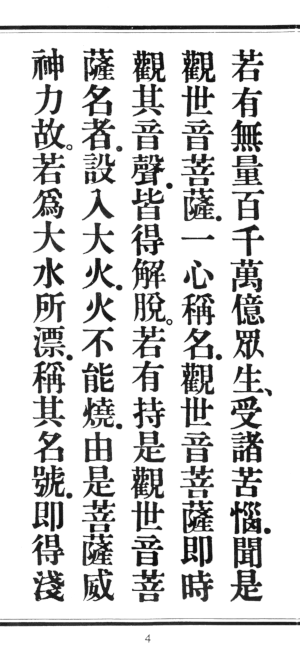 若有無量百千萬億眾生、受諸苦惱.聞是
觀世音菩薩.一心稱名.觀世音菩薩即時
觀其音聲.皆得解脫。若有持是觀世音菩
薩名者.設入大火.火不能燒.由是菩薩威
神力故。若為大水所漂.稱其名號.即得淺
4